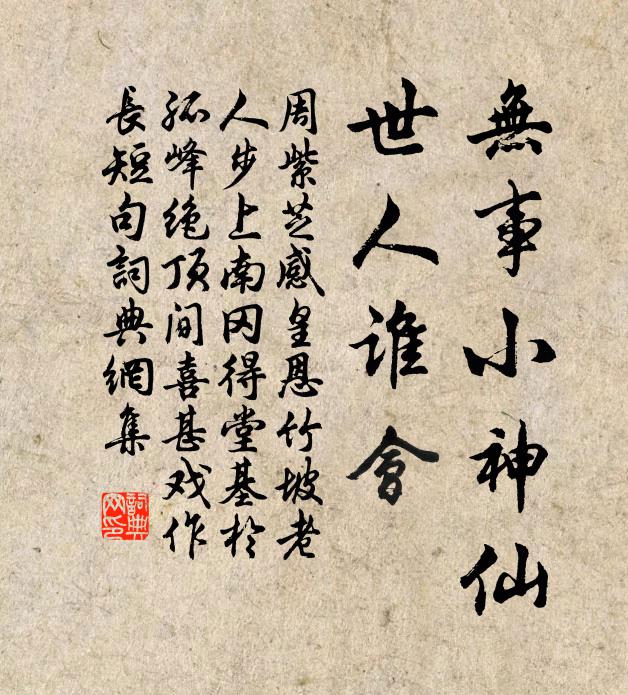 無事小神仙
世人誰會
周紫芝感皇恩竹坡老
人步上南冈得堂基於
孤峰绝顶间喜甚戏作
長短句詞典網集
詞典
网印